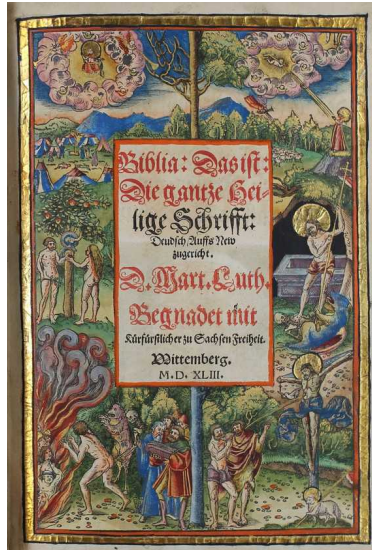 Biblia: Das ist:
Die gantze Hei-
lige Schrifft:
Deudsch, Auffs New
zugericht.
D. Mart. Luth.
Begnadet mit
Kürfürstlicher zu Sachsen Freiheit.
Wittemberg.
M. D. XLIII.